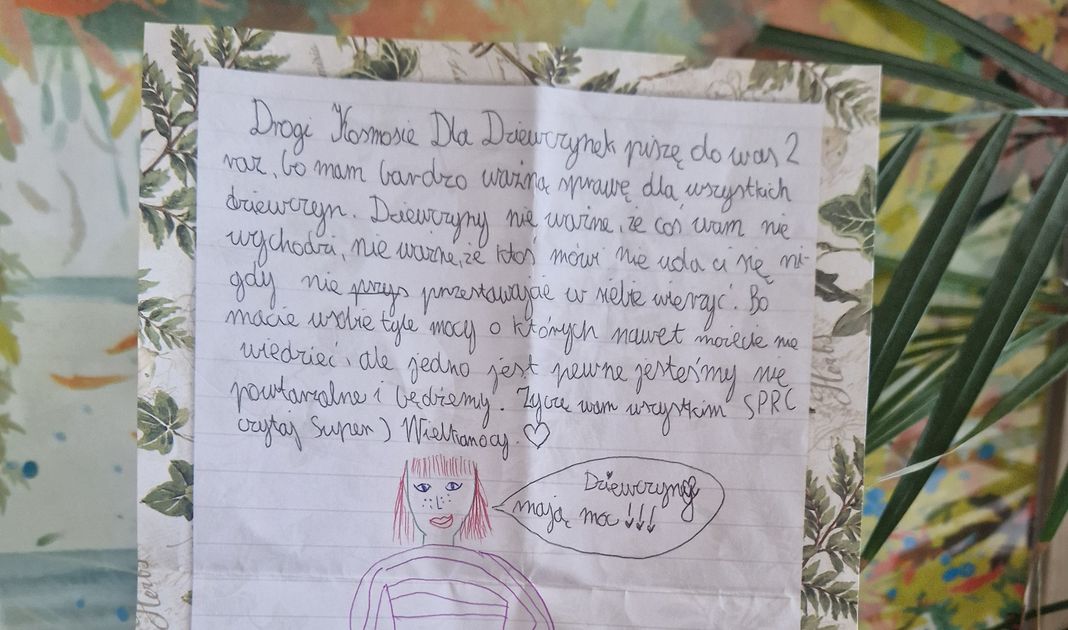 Drogi Kosmosie Dla Dziewczynek piszę do was 2
raz, bo mam bardzo ważną sprawę dla wszystkich
dziewczyn. Dziewczyny nie ważne, że coś wam nie
wychodzi, nie ważne, że ktoś mówi nie uda ci się ni-
gdy nie przys przestawajcie w siebie wierzyć. Bo
macie wsobie tyle mocy o których nawet możecie nie
wiedzieć, ale jedno jest pewne jesteśmy nie
powtarzalne i będziemy. Życzę wam wszystkim SPRC
czytaj Super) Wielkanocy. ♡
Dziewczyny
mają moc !!!
Herbs
Herbs